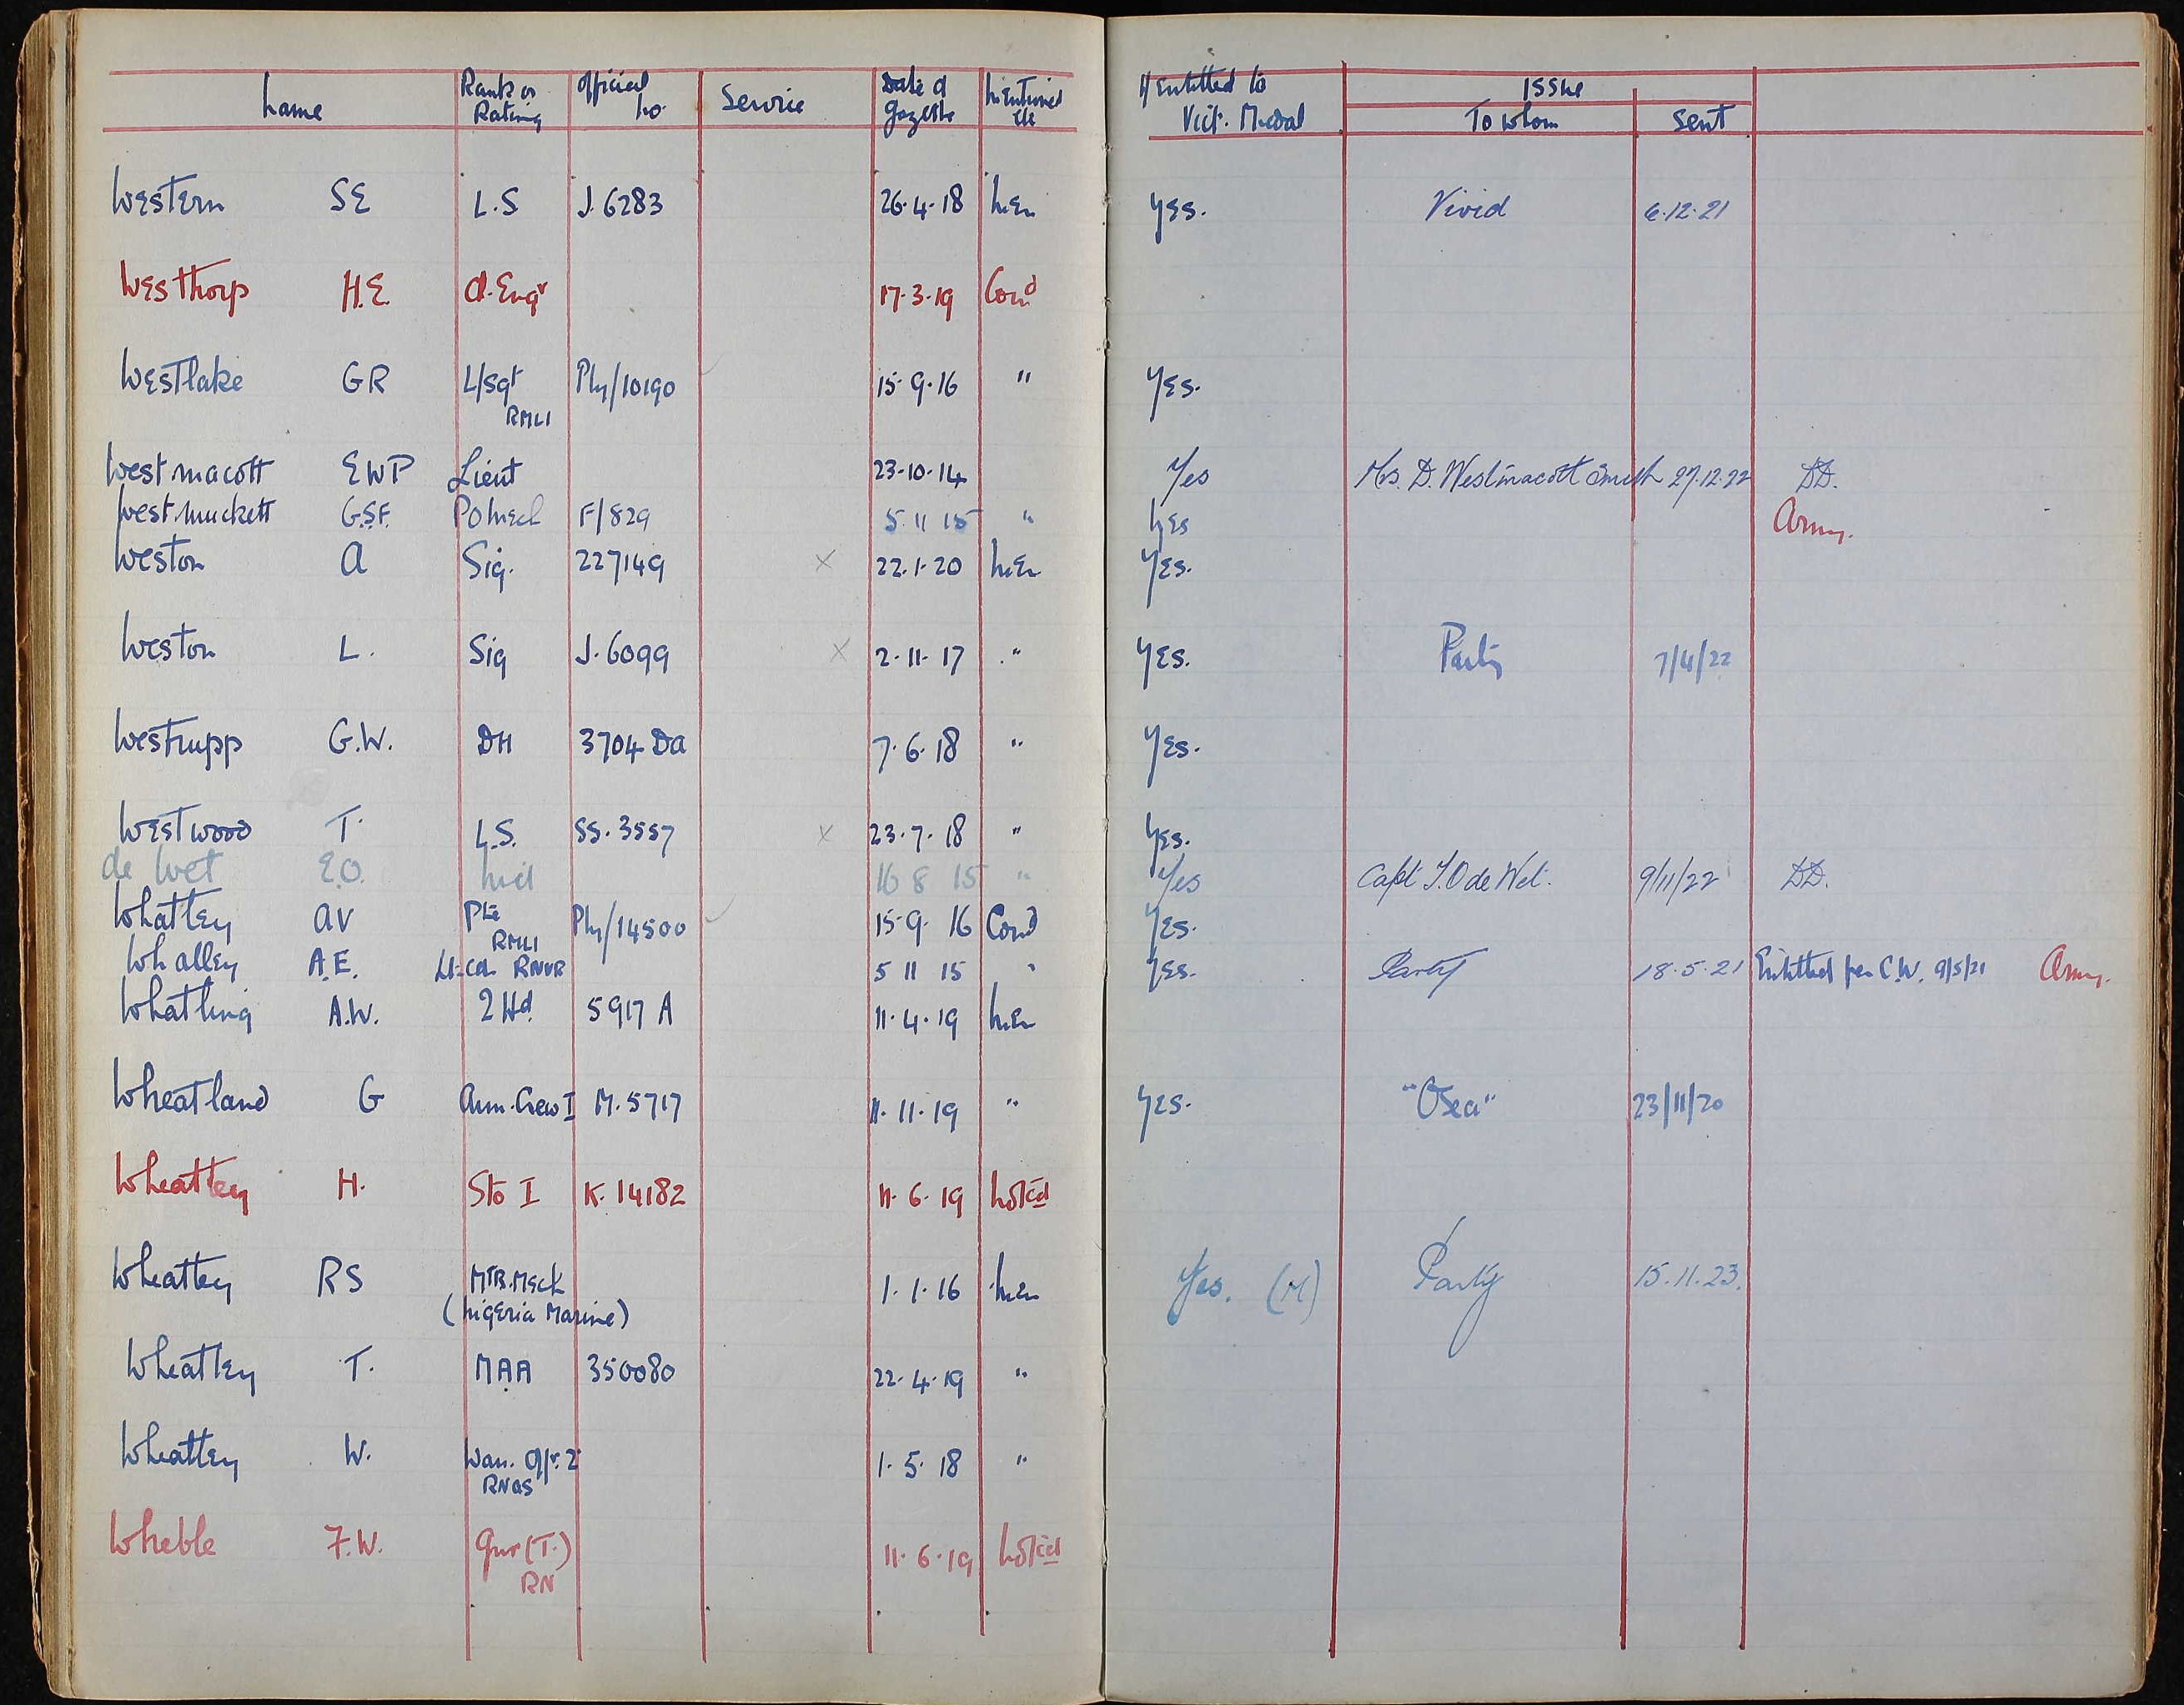 Name Rank or Rating Official No. Service Date of Gazette Mentioned etc If entitled to Vict. Medal Issue To whom Sent
Western SE L.S J.6283 26.4.18 Men Yes. Vivid 6.12.21
Westhorp H.E. A.Engr 17.3.19 Comd
Westlake GR L/Sgt RMLI Ply/10190 15.9.16 " Yes.
Westmacott EWP Lieut 23.10.14 Yes Mrs. D. Westmacott Smith 27.12.22 DD.
Westmuckett G.S.F. PO Mech F/829 5 11 15 " Yes Army.
Weston A Sig. 227149 x 22.1.20 Men Yes.
Weston L. Sig J.6099 x 2.11.17 " Yes. Party 7/4/22
Westrupp G.W. DH 3704 DA 7.6.18 " Yes.
Westwood T. L.S. SS.3557 x 23.7.18 " Yes.
de Wet E.O. Mid 16 8 15 " Yes Capt T.O de Wet. 9/11/22 DD.
Whatley AV Pte RMLI Ply/14500 15.9.16 Comd Yes.
Whalley A.E. Lt-Cdr RNVR 5 11 15 " Yes. Party 18.5.21 Entitled per C.W. 9/5/21 Army.
Whatling A.W. 2 Hd. 5917 A 11.4.19 Men
Wheatland G Arm. Crew I M.5717 11.11.19 " Yes. "Osea" 23/11/20
Wheatley H. Sto I K.14182 11.6.19 Noted
Wheatley RS Mr. Meck (Nigeria Marine) 1.1.16 Men Yes. (M) Party 15.11.23.
Wheatley T. MAA 350080 22.4.19 "
Wheatley W. Warr. Ofr. 2 RNAS 1.5.18 "
Wheble F.W. Gnr (T.) RN 11.6.19 Noted